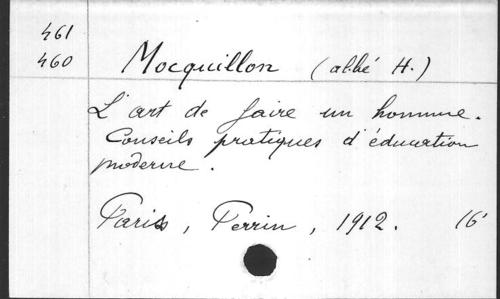 461
460 Mocquillon (abbé H.)
L'art de faire un homme.
Conseils pratiques d'éducation
moderne.
Paris, Perrin, 1912. 16°